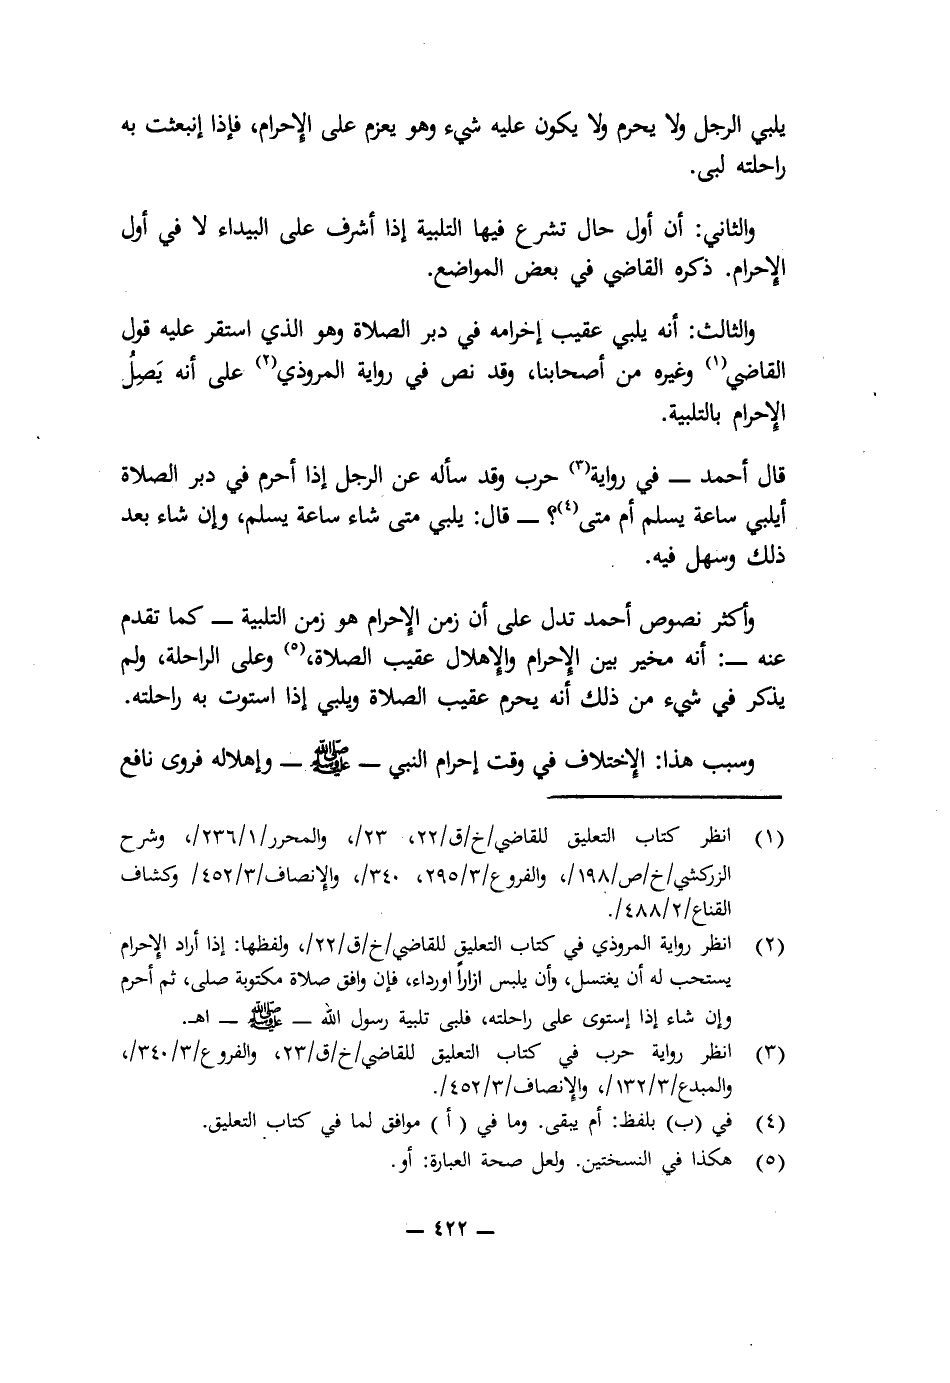 يلبي الرجل ولا يحرم ولا يكون عليه شيء وهو يعزم على الإحرام، فإذا إنبعثت به
راحلته لبى.
والثاني: أن أول حال تشرع فيها التلبية إذا أشرف على البيداء لا في أول
الإحرام. ذكره القاضي في بعض المواضع.
والثالث: أنه يلبي عقيب إخرامه في دبر الصلاة وهو الذي استقر عليه قول
القاضي(١) وغيره من أصحابنا، وقد نص في رواية المروذي(٢) على أنه يَصِلُ
الإحرام بالتلبية.
قال أحمد — في رواية(٣) حرب وقد سأله عن الرجل إذا أحرم في دبر الصلاة
أيلبي ساعة يسلم أم متى(٤)؟ — قال: يلبي متى شاء ساعة يسلم، وإن شاء بعد
ذلك وسهل فيه.
وأكثر نصوص أحمد تدل على أن زمن الإحرام هو زمن التلبية — كما تقدم
عنه —: أنه مخير بين الإحرام والإهلال عقيب الصلاة،(٥) وعلى الراحلة، ولم
يذكر في شيء من ذلك أنه يحرم عقيب الصلاة ويلبي إذا استوت به راحلته.
وسبب هذا: الإختلاف في وقت إحرام النبي — ﷺ — وإهلاله فروى نافع
(١) انظر كتاب التعليق للقاضي/خ/ق/٢٢، ٢٣/، والمحرر/١/٢٣٦/، وشرح
الزركشي/خ/ص/١٩٨/، والفروع/٣/٢٩٥، ٣٤٠/، والإنصاف/٣/٤٥٢/ وكشاف
القناع/٢/٤٨٨/.
(٢) انظر رواية المروذي في كتاب التعليق للقاضي/خ/ق/٢٢/، ولفظها: إذا أراد الإحرام
يستحب له أن يغتسل، وأن يلبس ازاراً اورداء، فإن وافق صلاة مكتوبة صلى، ثم أحرم
وإن شاء إذا إستوى على راحلته، فلبى تلبية رسول الله — ﷺ — اهـ.
(٣) انظر رواية حرب في كتاب التعليق للقاضي/خ/ق/٢٣، والفروع/٣/٣٤٠/،
والمبدع/٣/١٣٢/، والإنصاف/٣/٤٥٢/.
(٤) في (ب) بلفظ: أم يبقى. وما في (أ) موافق لما في كتاب التعليق.
(٥) هكذا في النسختين. ولعل صحة العبارة: أو.
— ٤٢٢ —